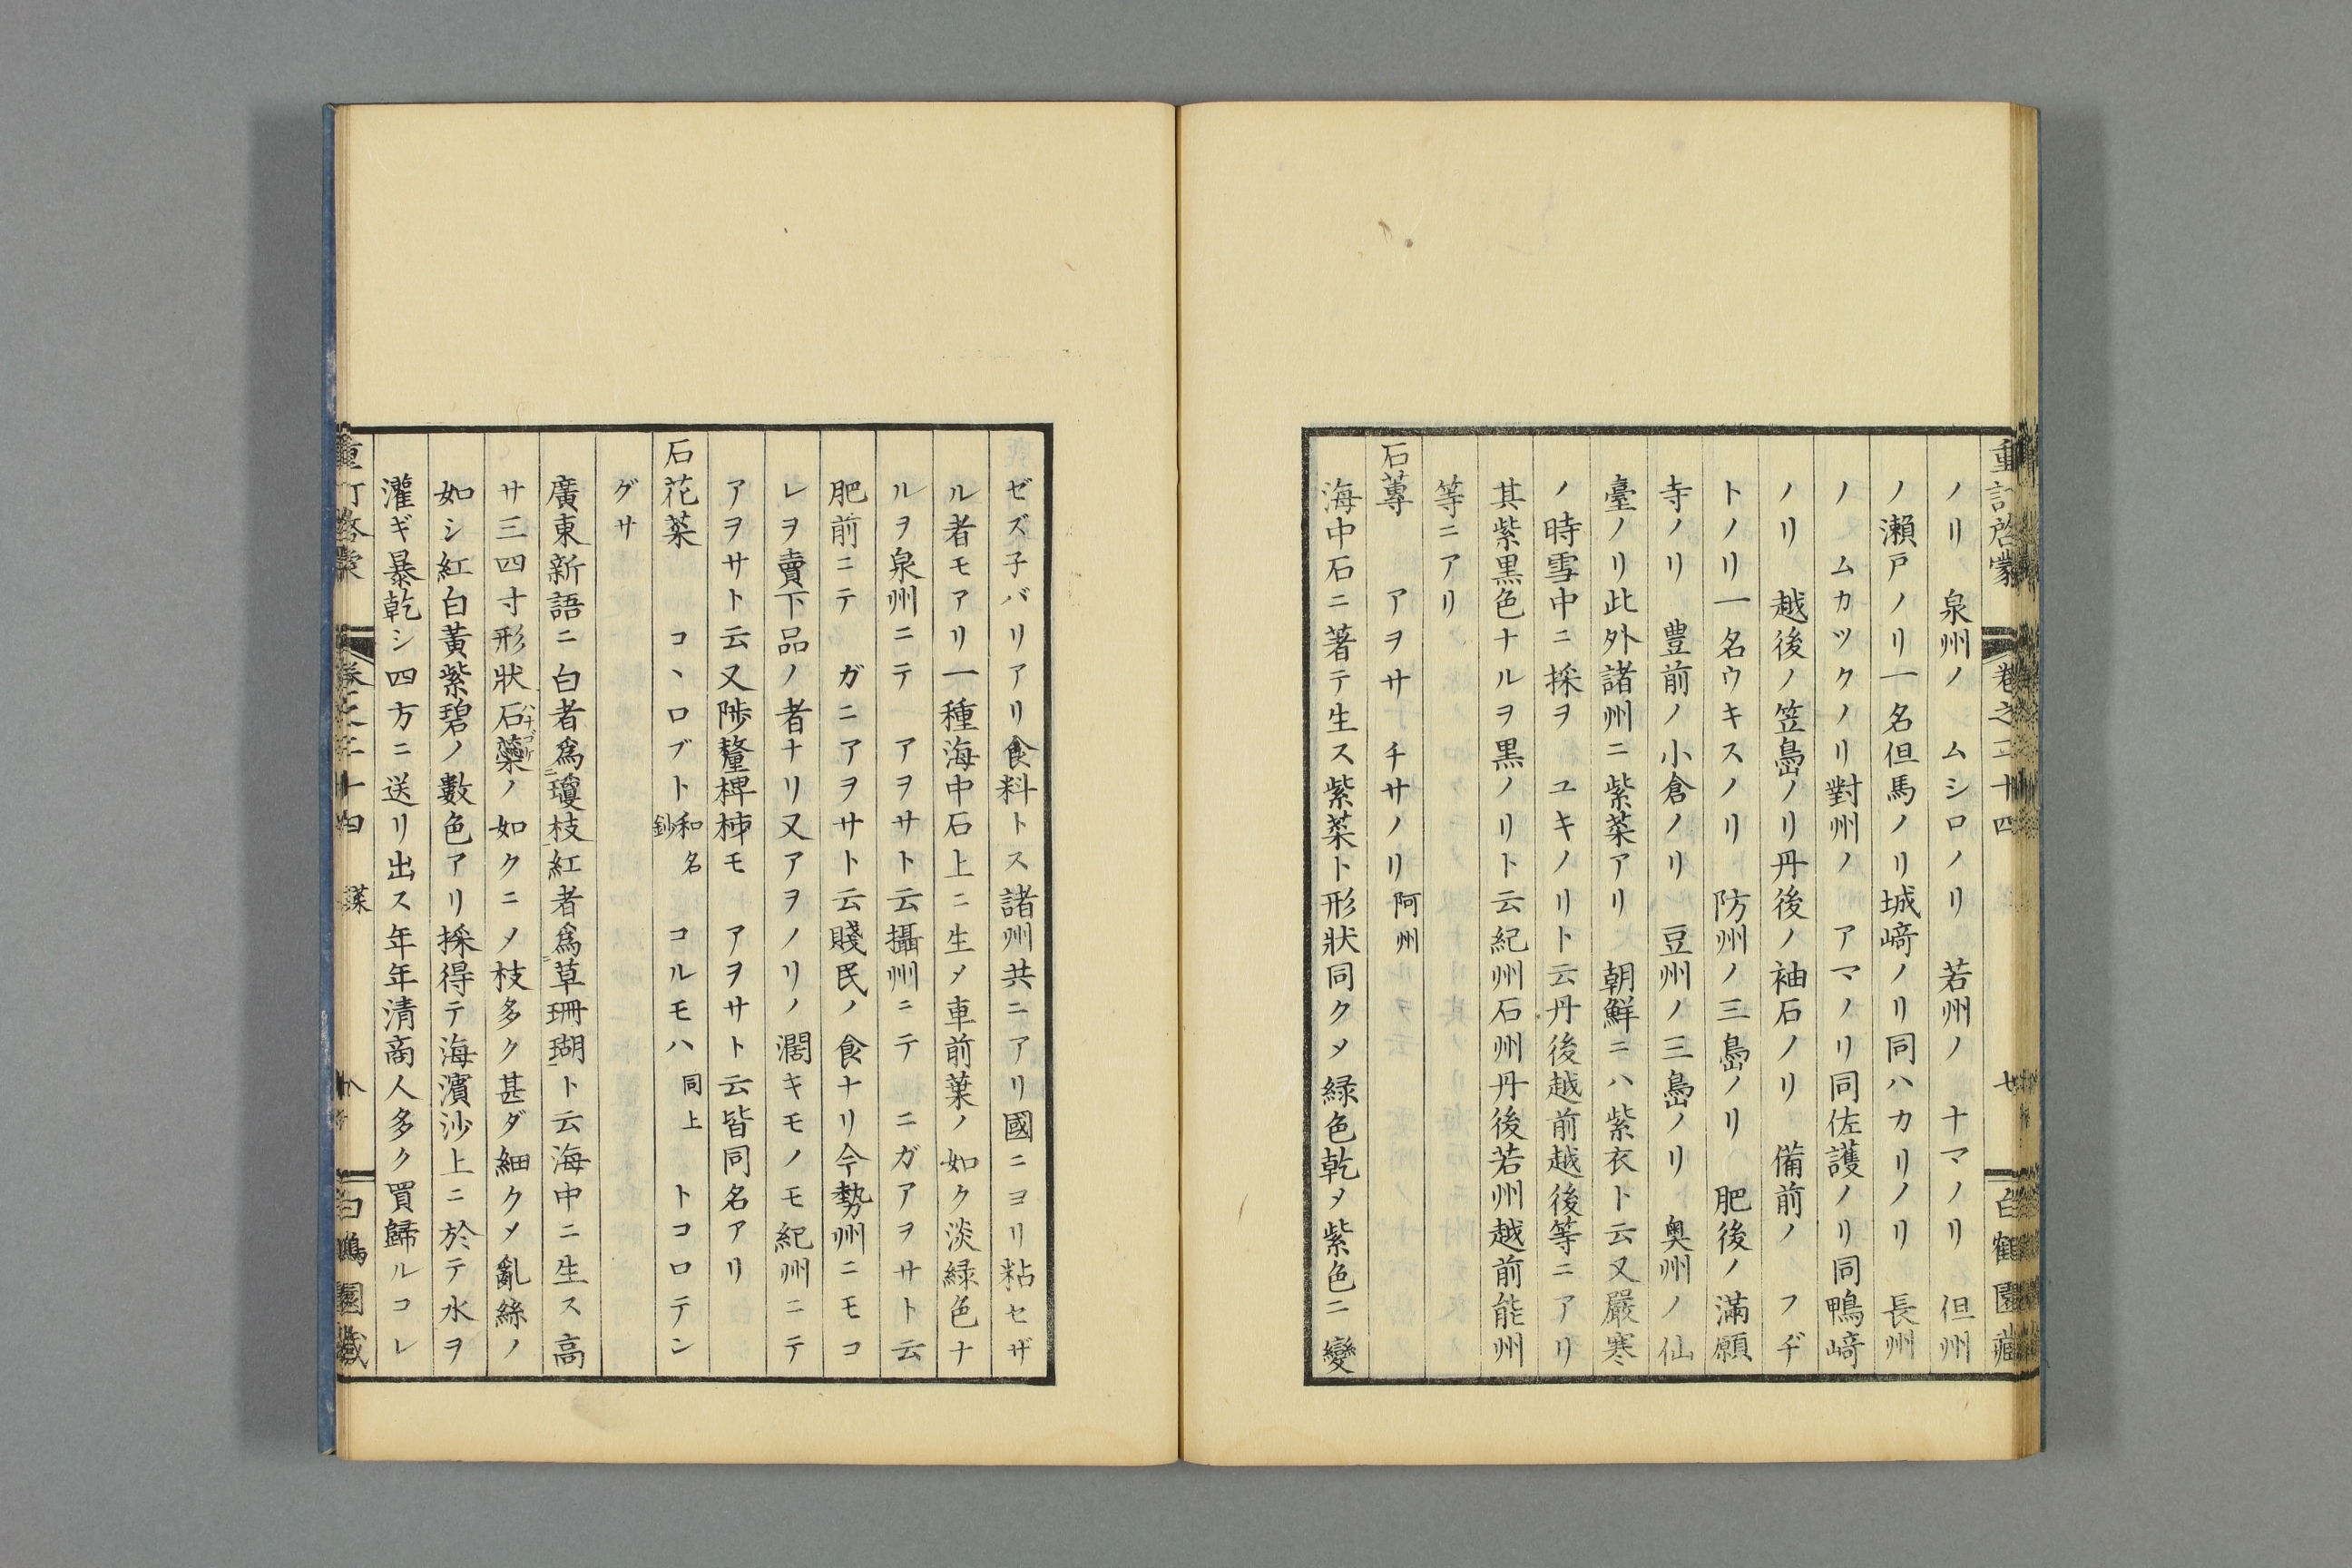 重訂啓蒙 卷之三十四 七 白鶴園藏
ノリ 泉州ノ ムシロノリ 若州ノ ナマノリ 但州
ノ瀬戸ノリ一名但馬ノリ城﨑ノリ同ハカリノリ 長州
ノ ムカツクノリ對州ノ アマノリ同佐護ノリ同鴨﨑
ノリ 越後ノ笠島ノリ丹後ノ袖石ノリ 備前ノ フヂ
トノリ一名ウキスノリ 防州ノ三島ノリ 肥後ノ滿願
寺ノリ 豊前ノ小倉ノリ 豆州ノ三島ノリ 奥州ノ仙
臺ノリ此外諸州ニ紫菜アリ 朝鮮ニハ紫衣ト云又嚴寒
ノ時雪中ニ採ヲ ユキノリト云丹後越前越後等ニアリ
其紫黒色ナルヲ黒ノリト云紀州石州丹後若州越前能州
等ニアリ
石蓴 アヲサ チサノリ 阿州
海中石ニ著テ生ス紫菜ト形狀同クメ緑色乾メ紫色ニ變
ゼズ子バリアリ食料トス諸州共ニアリ國ニヨリ粘セザ
ル者モアリ一種海中石上ニ生メ車前葉ノ如ク淡緑色ナ
ルヲ泉州ニテ アヲサト云攝州ニテ ニガアヲサト云
肥前ニテ ガニアヲサト云賤民ノ食ナリ今勢州ニモコ
レヲ賣下品ノ者ナリ又アヲノリノ濶キモノモ紀州ニテ
アヲサト云又陟釐稗柹モ アヲサト云皆同名アリ
石花菜 コヽロブト 和名鈔 コルモハ 同上 トコロテン
グサ
廣東新語ニ白者爲瓊枝紅者爲草珊瑚ト云海中ニ生ス高
サ三四寸形狀石蘂ハナゴケノ如クニメ枝多ク甚ダ細クメ亂絲ノ
如シ紅白黃紫碧ノ數色アリ採得テ海濱沙上ニ於テ水ヲ
灌ギ暴乾シ四方ニ送リ出ス年年清商人多ク買歸ルコレ
重訂啓蒙 卷之三十四 藻 八 白鶴園藏